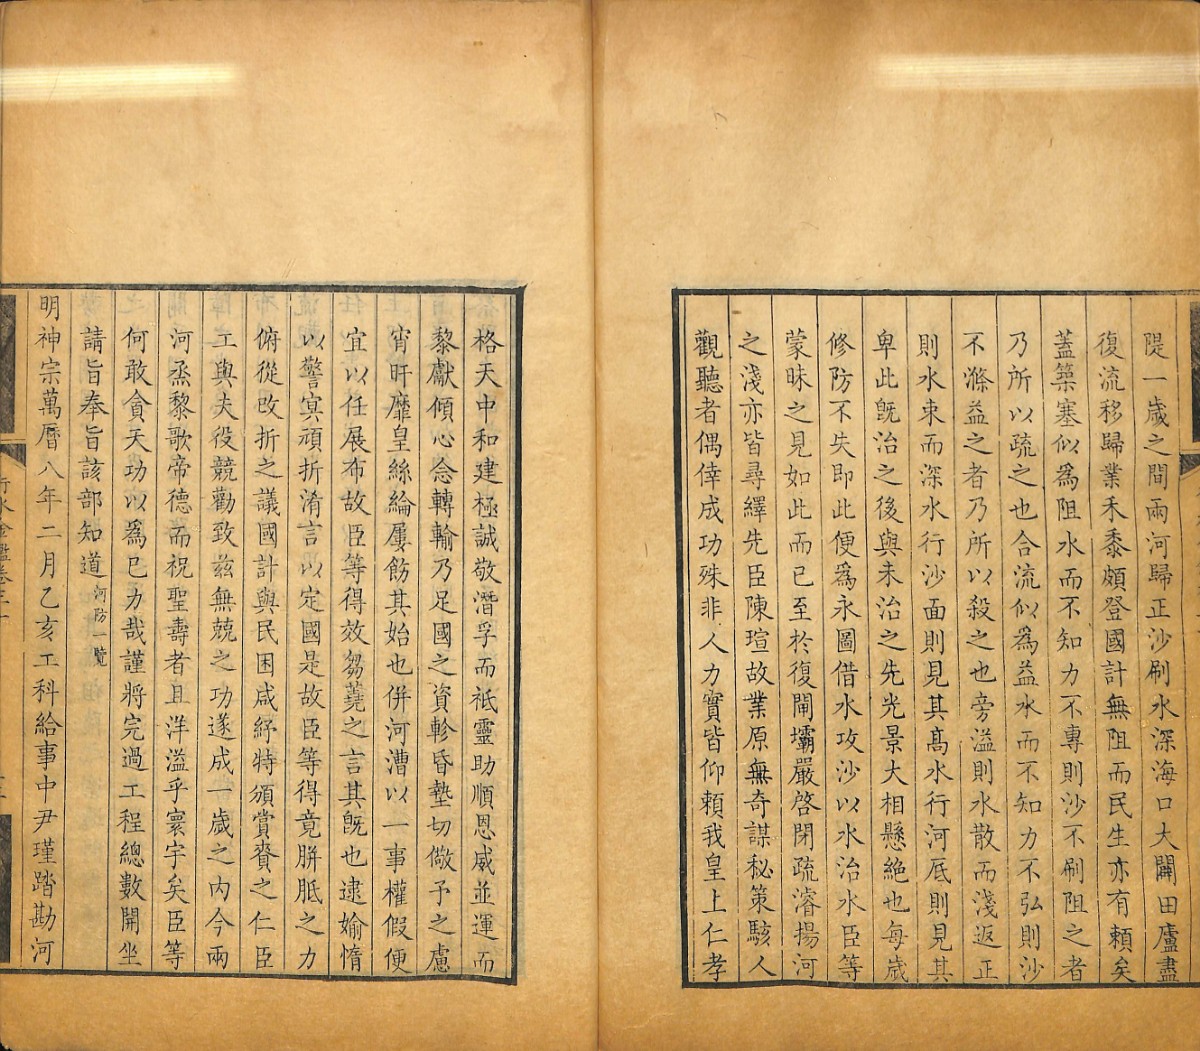 隄一歲之間兩河歸正沙刷水深海口大闢田廬盡
復流移歸業禾黍頗登國計無阻而民生亦有賴矣
蓋築塞似爲阻水而不知力不專則沙不刷阻之者
乃所以疏之也合流似爲益水而不知力不弘則沙
不滌益之者乃所以殺之也旁溢則水散而淺返正
則水束而深水行沙面則見其高水行河底則見其
卑此旣治之後與未治之先光景大相懸絶也每歲
修防不失即此便爲永圖借水攻沙以水治水臣等
蒙昧之見如此而已至於復閘壩嚴啓閉疏濬揚河
之淺亦皆尋繹先臣陳瑄故業原無奇謀秘策駭人
觀聽者偶倖成功殊非人力實皆仰賴我皇上仁孝
格天中和建極誠敬潛孚而祇靈助順恩威並運而
黎獻傾心念轉輸乃足國之資軫昏墊切儆予之慮
宵旰靡皇絲綸屢飭其始也併河漕以一事權假便
宜以任展布故臣等得效芻蕘之言其旣也逮媮惰
以警㝠頑折淆言以定國是故臣等得竟胼胝之力
俯從改折之議國計與民困咸紓特頒賞賚之仁臣
工與夫役競勸致茲無兢之功遂成一歲之內今兩
河烝黎歌帝德而祝聖壽者且洋溢乎寰宇矣臣等
何敢貪天功以爲已力哉謹將完過工程總數開坐
請旨奉旨該部知道河防一覽
明神宗萬曆八年二月乙亥工科給事中尹瑾踏勘河
行水金鑑卷三十